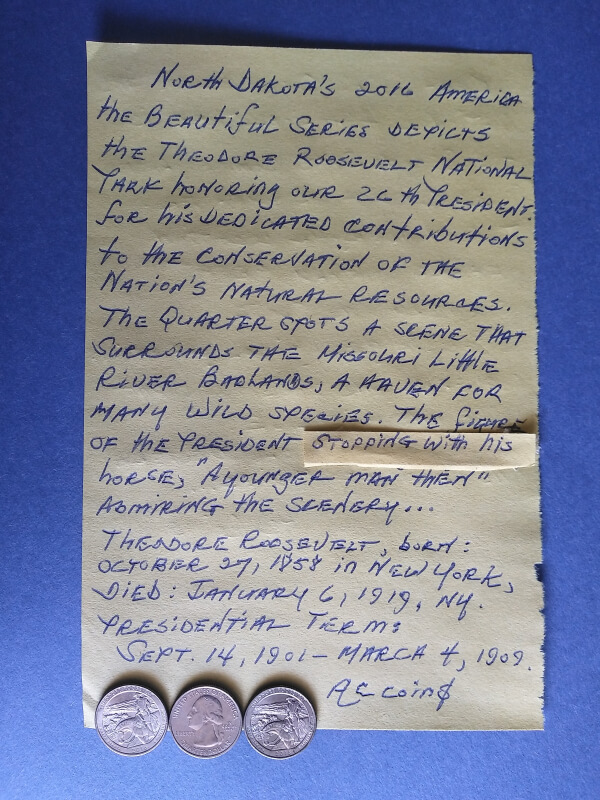 North Dakota's 2016 America
the Beautiful Series depicts
the Theodore Roosevelt National
Park honoring our 26th President.
for his dedicated contributions
to the conservation of the
Nation's Natural Resources.
The Quarter spots a scene that
surrounds the Missouri Little
River Badlands, a haven for
many wild species. The figure
of the President stopping with his
horse, "A younger man then"
admiring the scenery...
Theodore Roosevelt, born:
October 27, 1858 in New York,
Died: January 6, 1919, NY.
Presidential Term:
Sept. 14, 1901 - March 4, 1909.
AC coin$